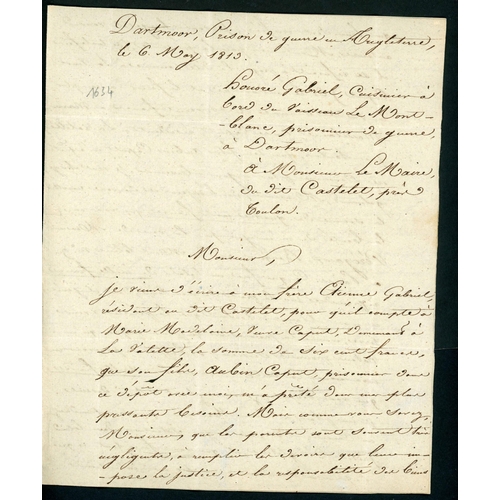 Dartmoor, Prison de guerre en Angleterre,
le 6 May 1813.
1634
Honoré Gabriel, Cuisinier à
bord du Vaisseau Le Mont-
-blanc, prisonnier de guerre,
à Dartmoor.
à Monsieur Le Maire,
du dit Castelet, près
Toulon.
Monsieur,
Je viens d'écrire à mon frère Etienne Gabriel,
résident au dit Castelet, pour qu'il compte à
Marie Madelaine, Veuve Caput, demeurant à
La Valette, la somme de six cent francs,
que son fils, Aubin Caput, prisonnier dans
ce dépôt avec moi, m'a prêté dans mes plus
pressants besoins. Mais comme vous savez,
Monsieur, que les parents sont souvent très
négligents, à remplir les devoirs que leur im-
pose la justice, et la responsabilité de leurs